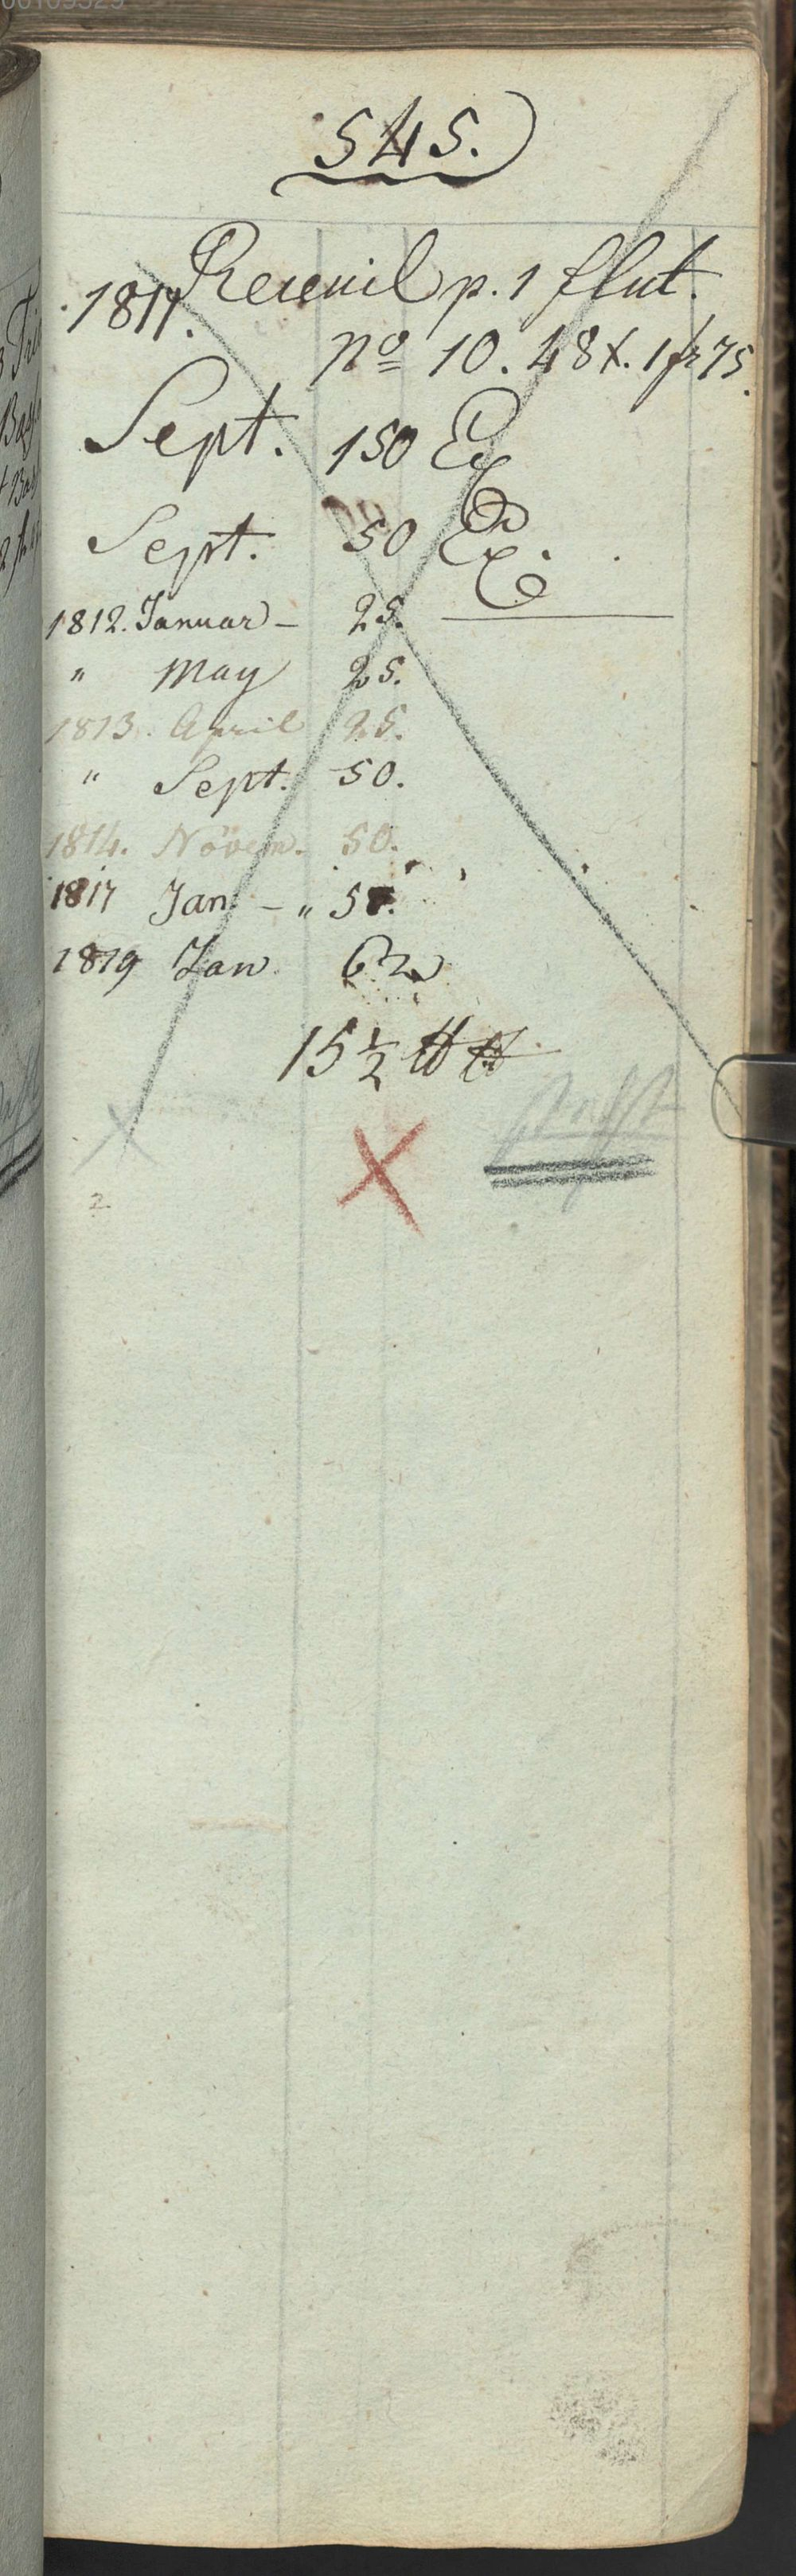 545.
Receuil p. 1 flut.
1811.
No 10. 48 x. 1 fr 75.
Sept. 150 Ex
Sept. 50 Ex.
1812. Januar – 25.
" May 25.
1813. April 25.
" Sept. 50.
1814. Novem. 50.
1817 Jan. – " 50.
1819 Jan
15 ½ ℔ ℔
2